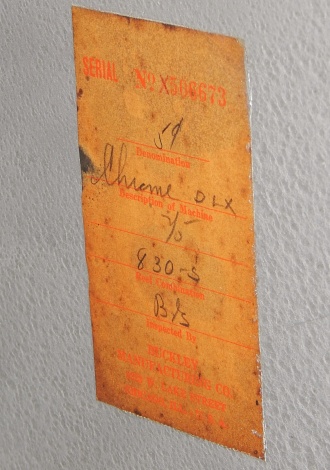 SERIAL No X506673
5¢
Denomination
Chrome DLX
Description of Machine
2/5
830-S
Reel Combination
Inspected By
BUCKLEY
MANUFACTURING CO.